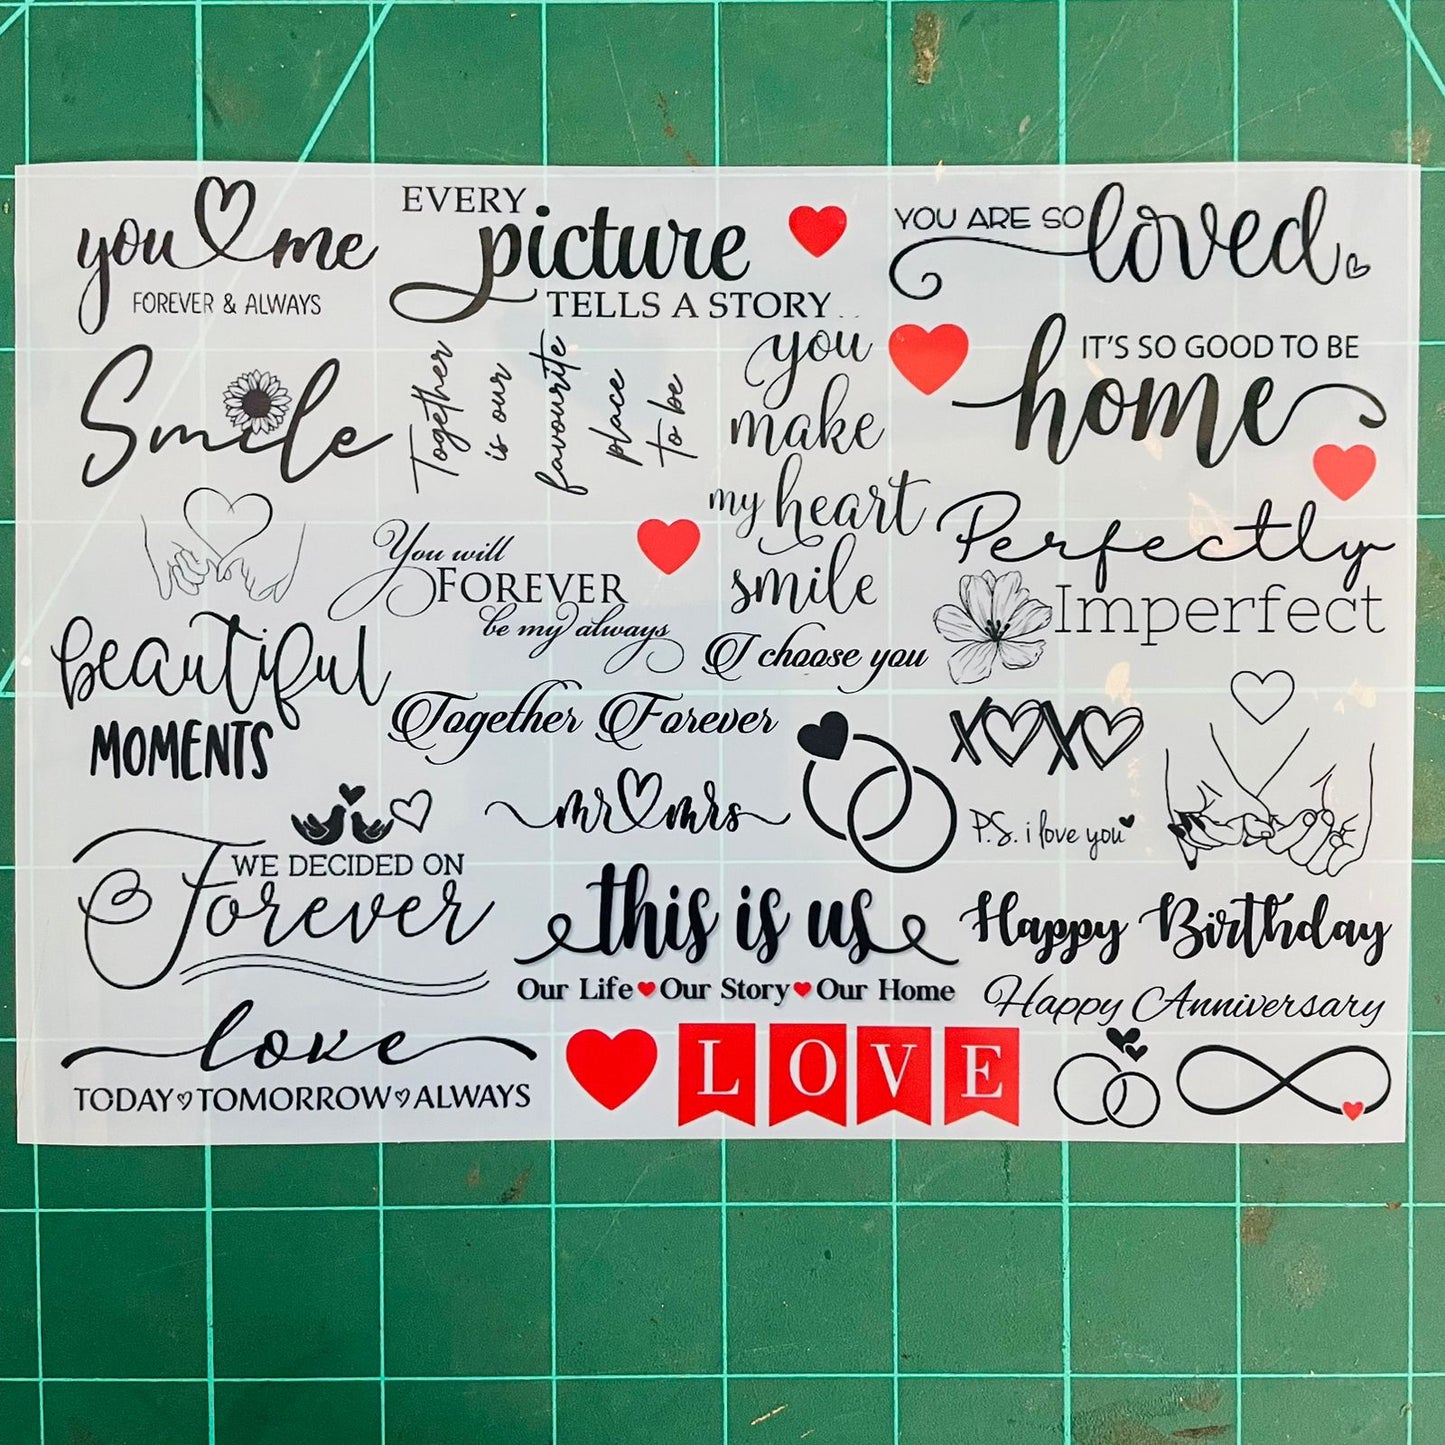 you me
FOREVER & ALWAYS
EVERY
picture
TELLS A STORY..
YOU ARE SO loved
Smile
Together
is our
favourite
place
to be
you
make
my heart
smile
IT'S SO GOOD TO BE
home
You will
FOREVER
be my always
Perfectly
Imperfect
beautiful
MOMENTS
I choose you
Together Forever
mr mrs
XOXO
P.S. i love you
WE DECIDED ON
Forever
this is us
Our Life Our Story Our Home
Happy Birthday
Happy Anniversary
love
TODAY TOMORROW ALWAYS
LOVE